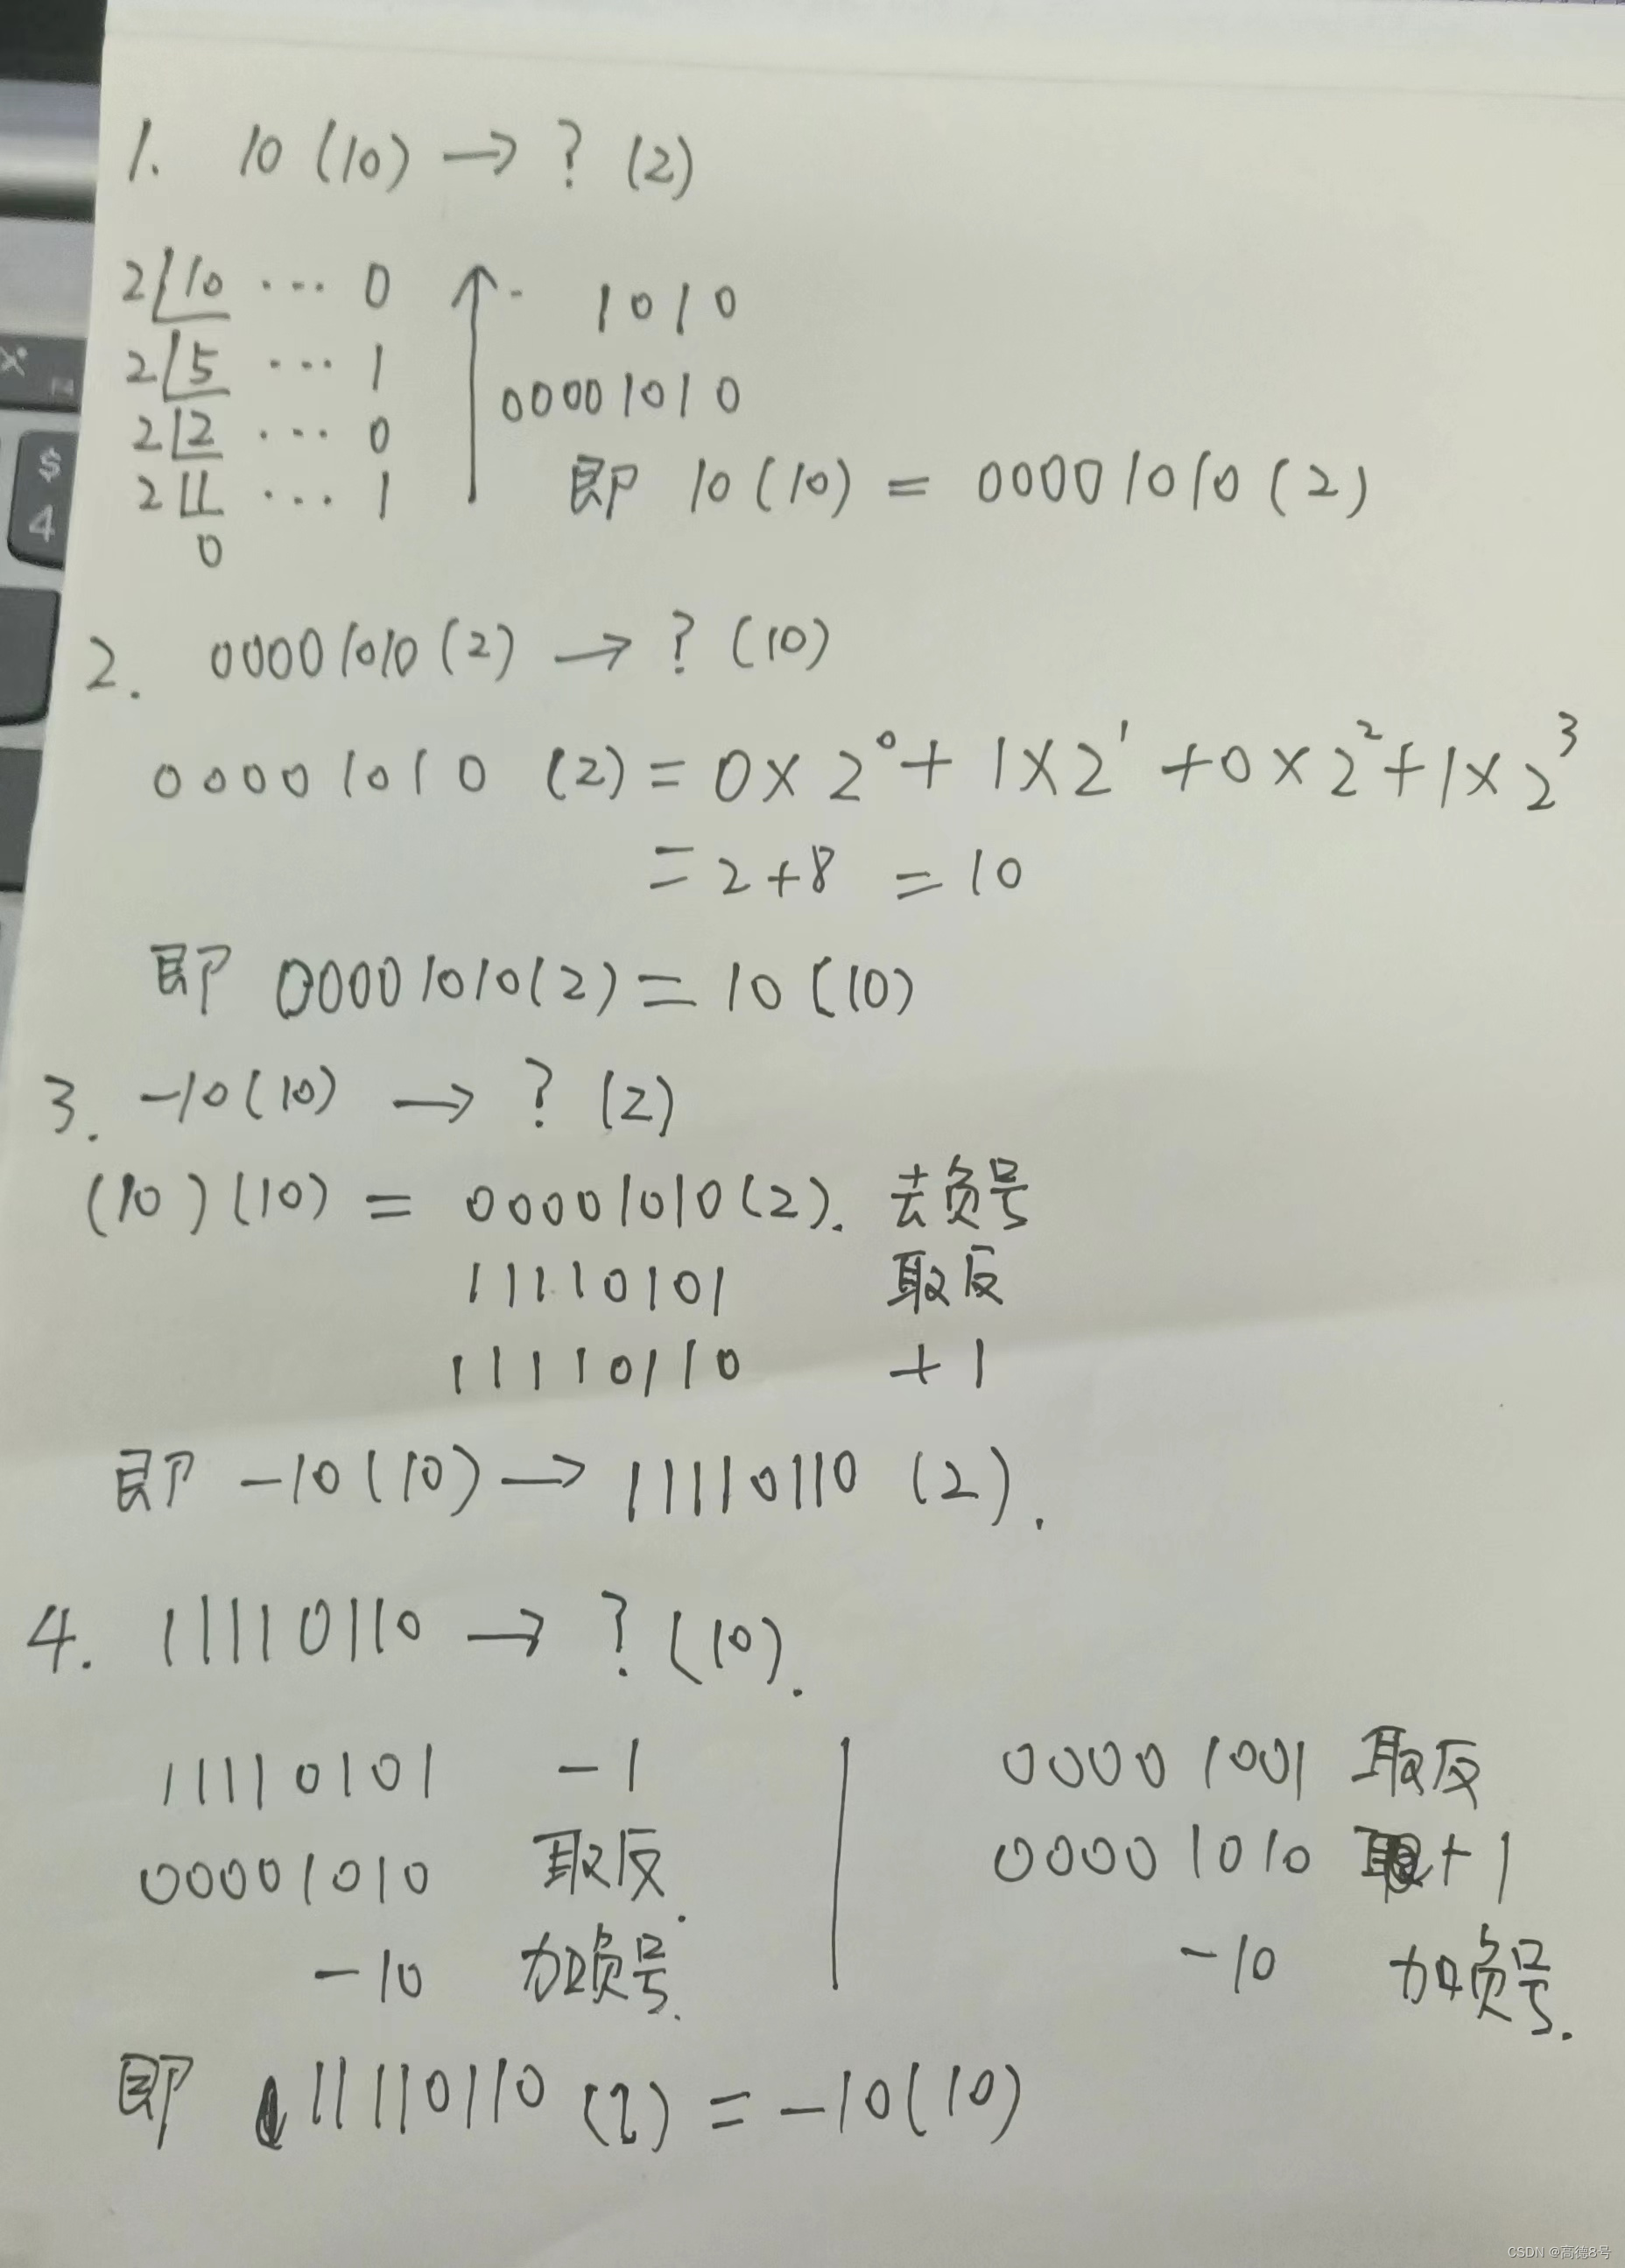 1. 10(10) → ? (2)
2 10 ... 0 ↑ 1010
2 5 ... 1
00001010
2 2 ... 0
2 1 ... 1
即 10(10) = 00001010(2)
0
2. 00001010(2) → ? (10)
00001010 (2) = 0×2⁰ + 1×2¹ + 0×2² + 1×2³
= 2+8 = 10
即 00001010(2) = 10(10)
3. -10(10) → ? (2)
(10)(10) = 00001010(2). 去负号
11110101 取反
11110110 +1
即 -10(10) → 11110110 (2).
4. 11110110 → ? (10).
11110101 -1
00001010 取反.
-10 加负号.
00001001 取反
00001010 +1
-10 加负号.
即 11110110 (2) = -10(10)
$
4
CSDN @高德8号